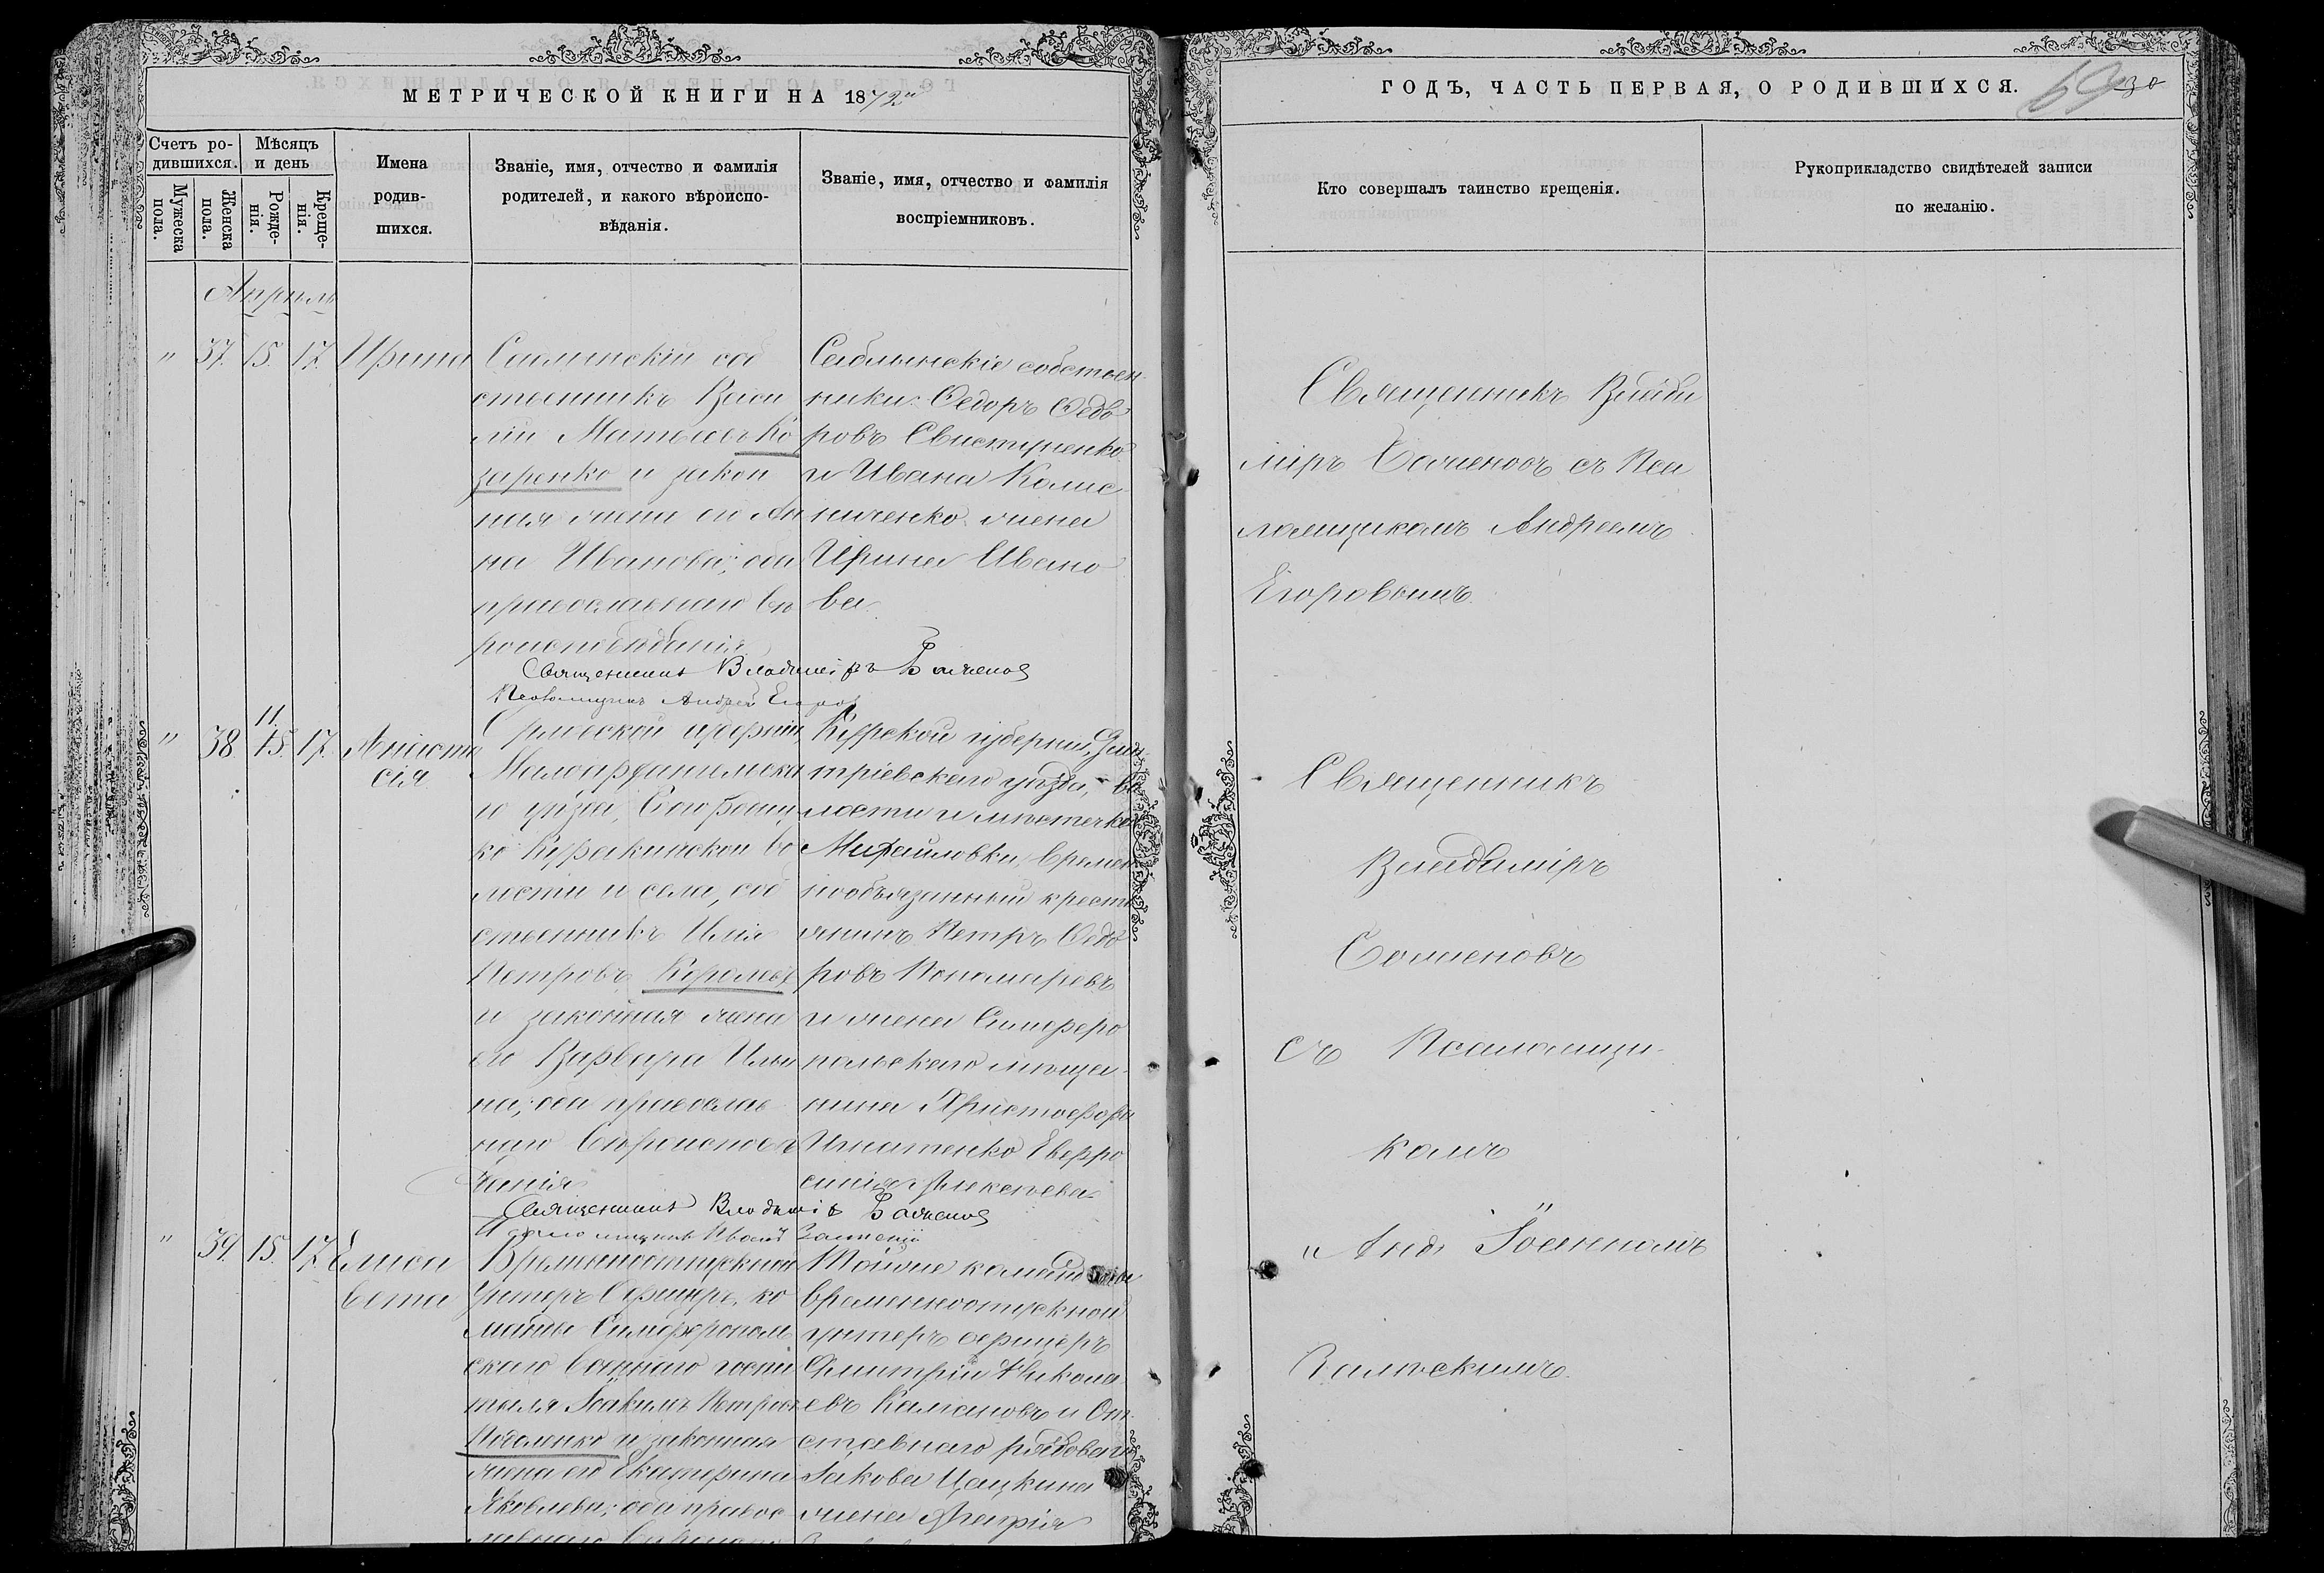 МЕТРИЧЕСКОЙ КНИГИ НА 1872й
Счетъ ро-
дившихся.
Мѣсяцъ
и день
Мужеска
пола.
Женска
пола.
Рожде-
нія.
Креще-
нія.
Имена
родив-
шихся.
Званіе, имя, отчество и фамилія
родителей, и какого вѣроиспо-
вѣданія.
Званіе, имя, отчество и фамилія
воспріемниковъ.
Апрѣль
" 37. 15. 17. Ирина
соб
ственникъ Васи
лій Матвѣевъ Ко
заренко и закон
ная жена его Ан
на Иванова; оба
православнаго вѣ
роисповѣданія
Саблынскіе собствен-
ники: Ѳедоръ Ѳедо
ровъ Свистуненко
и Ивана Колис
ниченко жена
Ирина Ивано
ва.
Священникъ Владиміръ Баженов
Псаломщикъ Андрей Егоров
" 38 11. 15. 17. Анаста
сія
Орловской губерніи,
Малоархангельска
го уѣзда,
ко Куракинской во
лости и села, соб
ственникъ Илія
Петровъ Королевъ
и законная жена
его Варвара Ильи
на; оба православ
наго вѣроисповѣ
данія
Курской губерніи, Дми-
тріевскаго уѣзда, во
лости и мѣстечка
Михайловки, времен
нообязанный крестья
янинъ Петръ Ѳедо
ровъ Пономаревъ
и жена Симферо
польскаго мѣща-
нина Христофора
Игнатенко Евфро
синія Алексѣева
Священникъ Владимір Баженов
" 39. 15. 17. Елиса
вета
Временноотпускной
Унтеръ Офицеръ, ко
манды Симферополь
скаго военнаго госпи
таля Іоакимъ Петровъ
Подоленко и законная
жена его Екатерина
Яковлева; оба правос
лавнаго
Тойже команды
временноотпускной
унтеръ офицеръ
Дмитрій Никола
евъ Калмановъ и От-
ставнаго рядоваго
Іакова Цацкина
жена Марія
ГОДЪ, ЧАСТЬ ПЕРВАЯ, О РОДИВШИХСЯ.
69
30
Кто совершалъ таинство крещенія.
Рукоприкладство свидѣтелей записи
по желанію.
Священникъ Влади
міръ Баженовъ съ Пса
ломщикомъ Андреемъ
Егоровымъ.
Священникъ
Владиміръ
Баженовъ
съ Псаломщи-
комъ
Іоанномъ
Залѣскимъ.